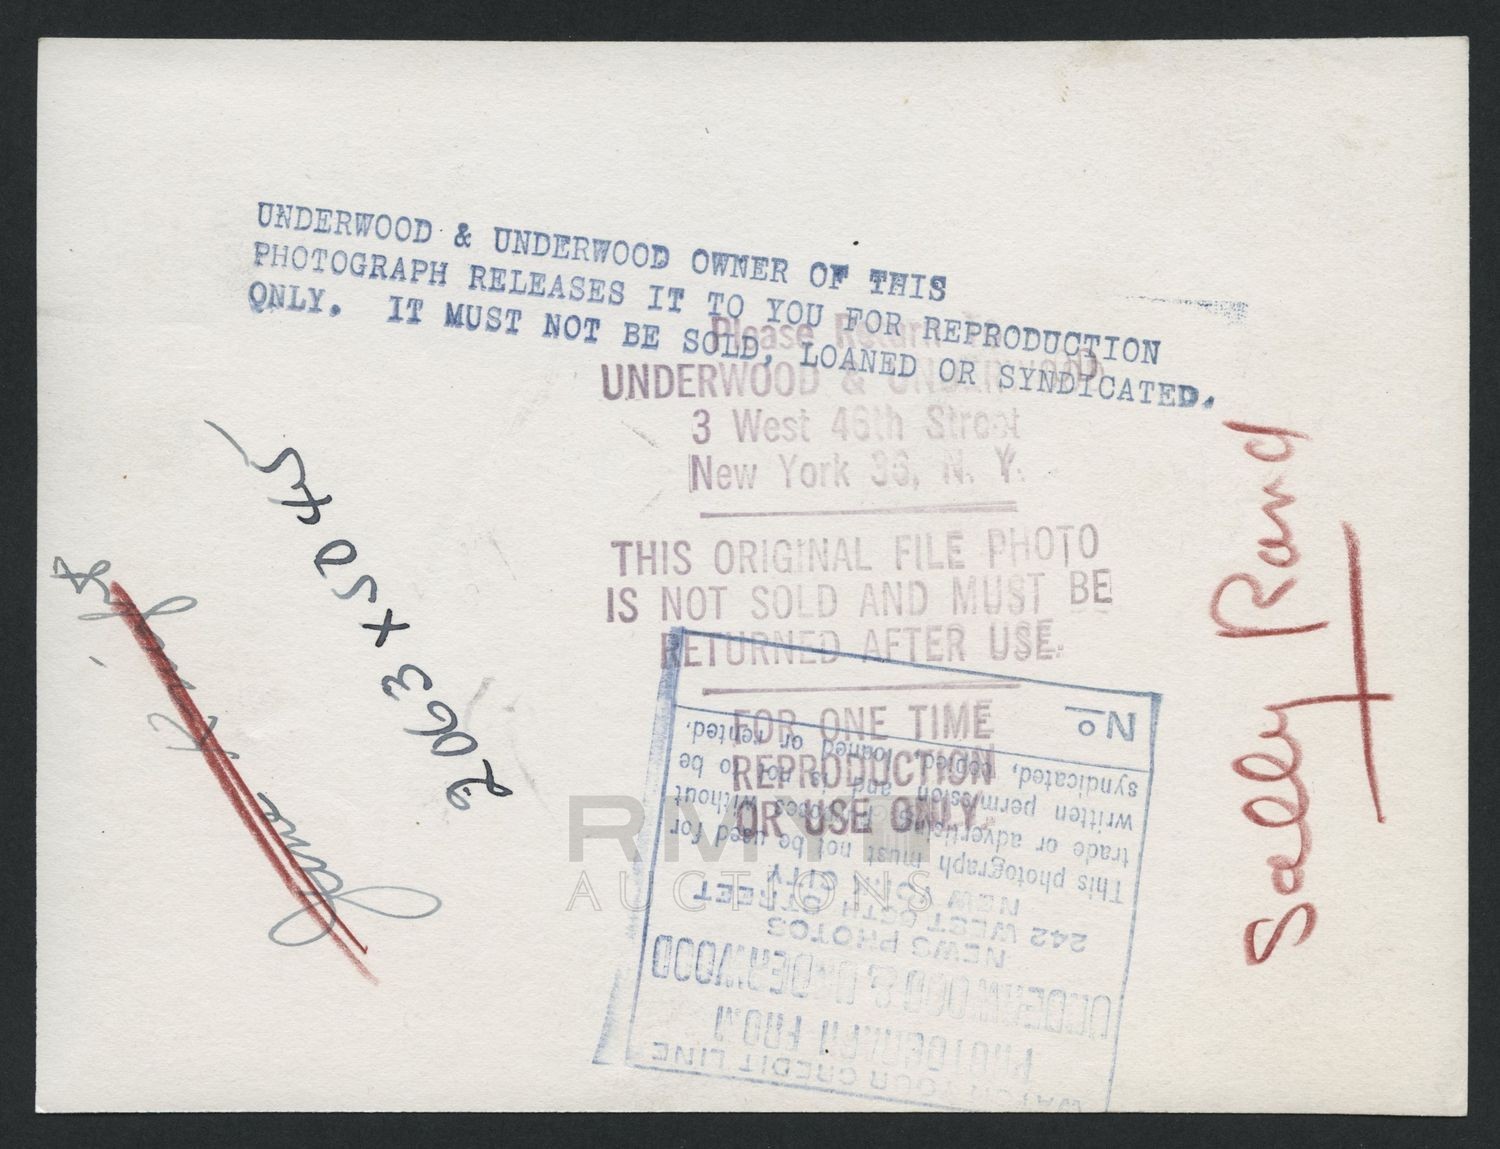 UNDERWOOD & UNDERWOOD OWNER OF THIS
PHOTOGRAPH RELEASES IT TO YOU FOR REPRODUCTION
ONLY. IT MUST NOT BE SOLD, LOANED OR SYNDICATED.
Please Return to
UNDERWOOD & UNDERWOOD
3 West 46th Street
New York 36, N. Y.
THIS ORIGINAL FILE PHOTO
IS NOT SOLD AND MUST BE
RETURNED AFTER USE.
FOR ONE TIME
REPRODUCTION
OR USE ONLY.
Sally Rand
2063 x 50 45
WATCH YOUR CREDIT LINE
PHOTOGRAPH FROM
UNDERWOOD & UNDERWOOD
NEWS PHOTOS
242 WEST 55TH STREET
NEW YORK CITY
This photograph must not be used for
trade or advertising purposes without
written permission and is not to be
syndicated, copied, loaned or rented.
No
RMYH
AUCTIONS